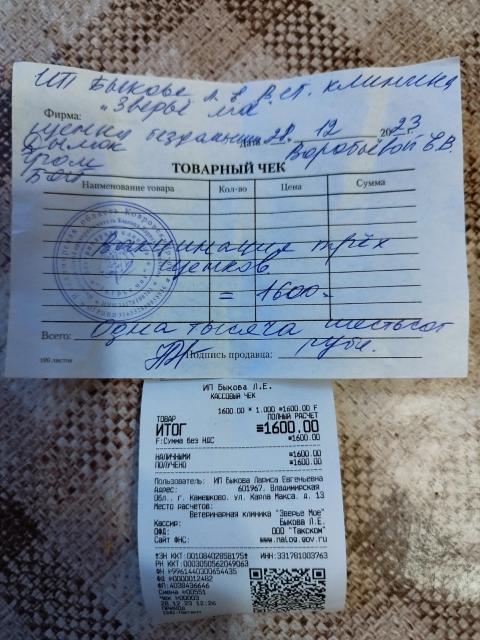 ИП Быкове Л. Е. Вет. клиника
"Зверьё моё"
Фирма:
щенки бездомные
Дата 28. 12 2023
Дымок
Воробьевой Е.В.
Гром
Бой
ТОВАРНЫЙ ЧЕК
Наименование товара Кол-во Цена Сумма
Вакцинация трёх
щенков
= 1600=
Всего: Одна тысяча шестьсот
рубл.
100 листов
Подпись продавца:
ИП Быкова Л.Е.
КАССОВЫЙ ЧЕК
1600.00 * 1.000 =1600.00 F
ТОВАР ПОЛНЫЙ РАСЧЕТ
ИТОГ =1600.00
F:Сумма без НДС =1600.00
НАЛИЧНЫМИ =1600.00
ПОЛУЧЕНО =1600.00
Пользователь: ИП Быкова Лариса Евгеньевна
Адрес: 601967, Владимирская
Обл., г. Камешково, ул. Карла Макса, д. 13
Место расчетов:
Ветеринарная клиника "Зверье Мое"
Кассир: Быкова Л.Е.
ОФД: ООО "Такском"
Сайт ФНС: www.nalog.gov.ru
ЗН ККТ:00108402858175 ИНН:331781003763
РН ККТ:0003050562049063
ФН №9961440300654435
ФД №0000012482
ФП:4038436646
Смена №00551
Чек №00003
28.12.23 12:26
ПРИХОД